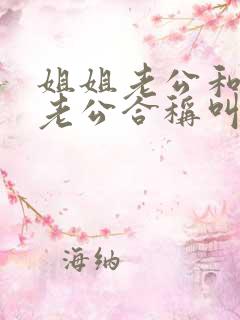 姐姐老公和
老公合稱叫
海纳